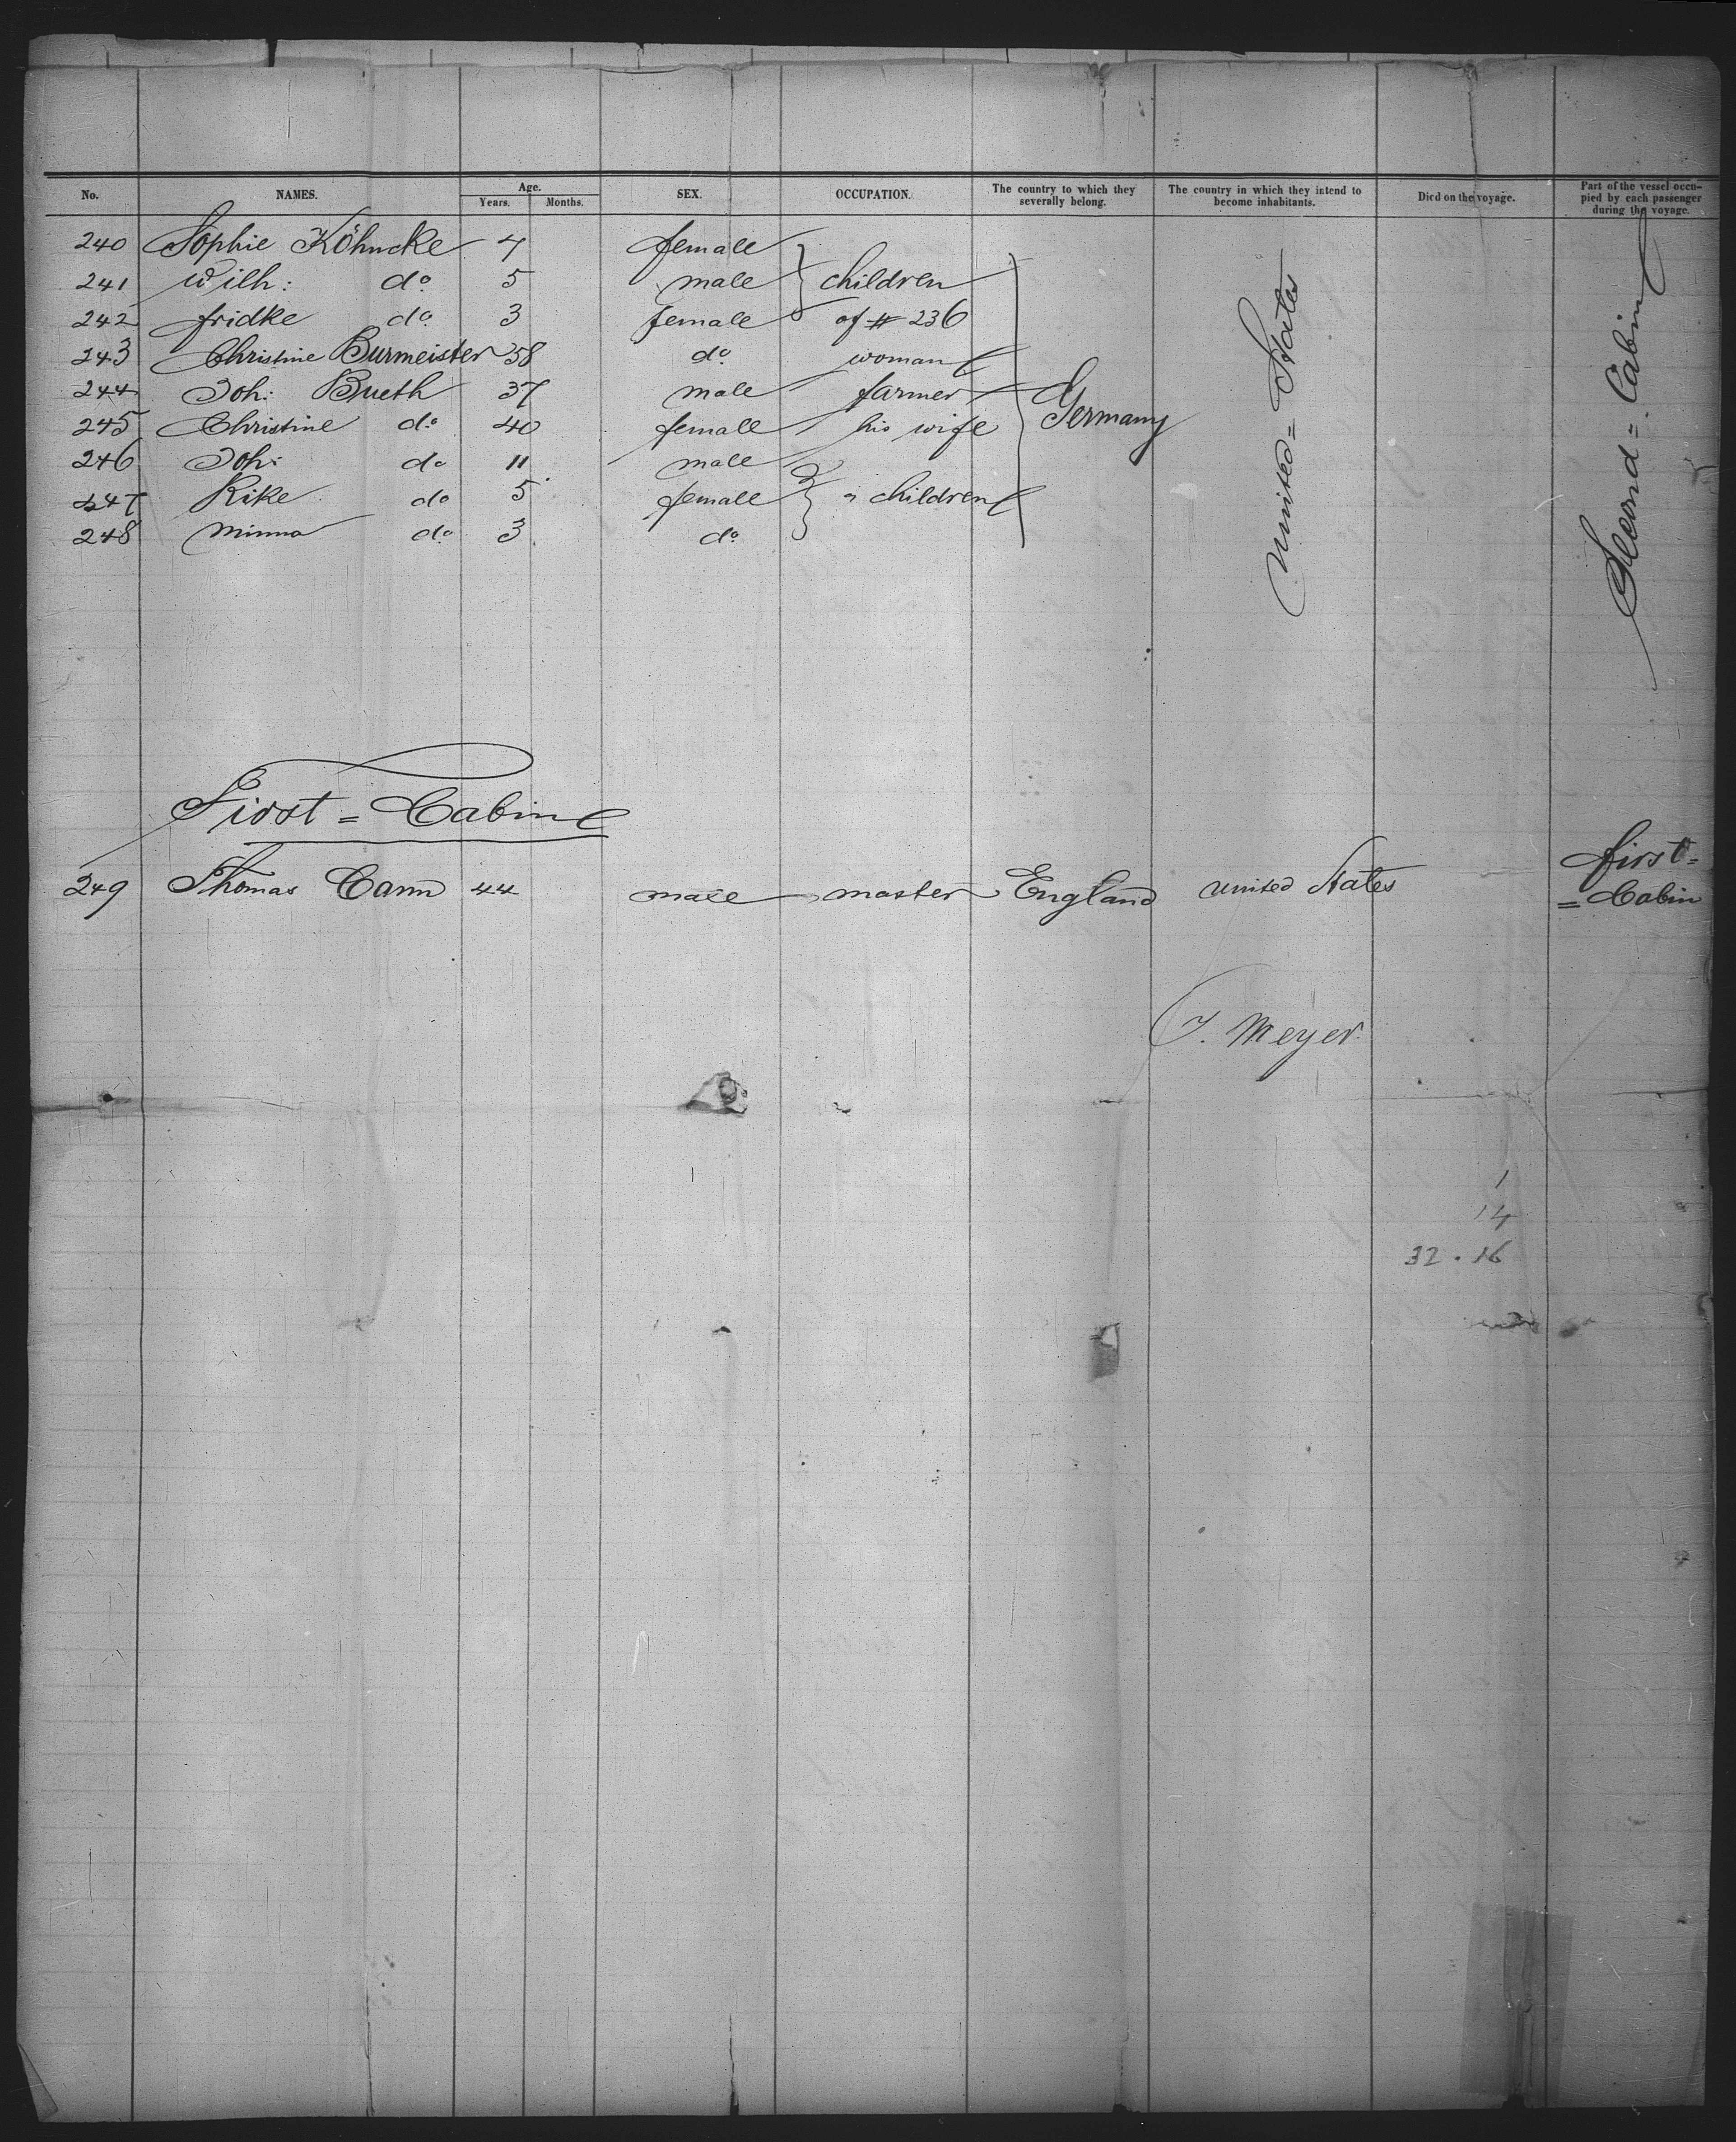 No. NAMES. Age. Years. Months. SEX. OCCUPATION. The country to which they severally belong. The country in which they intend to become inhabitants. Died on the voyage. Part of the vessel occupied by each passenger during the voyage.
240 Sophie Köhncke 7 female
241 Wilh: do 5 male children
242 fridke do 3 female of # 236
243 Christine Burmeister 58 do woman
244 Joh: Bueth 37 male farmer Germany
245 Christine do 40 female his wife
246 Joh: do 11 male
247 Rike do 5 female children
248 Minna do 3 do
United = States
Second = Cabin
First = Cabin
249 Thomas Cann 44 male master England United States first = = Cabin
J. Meyer
1
14
32 . 16